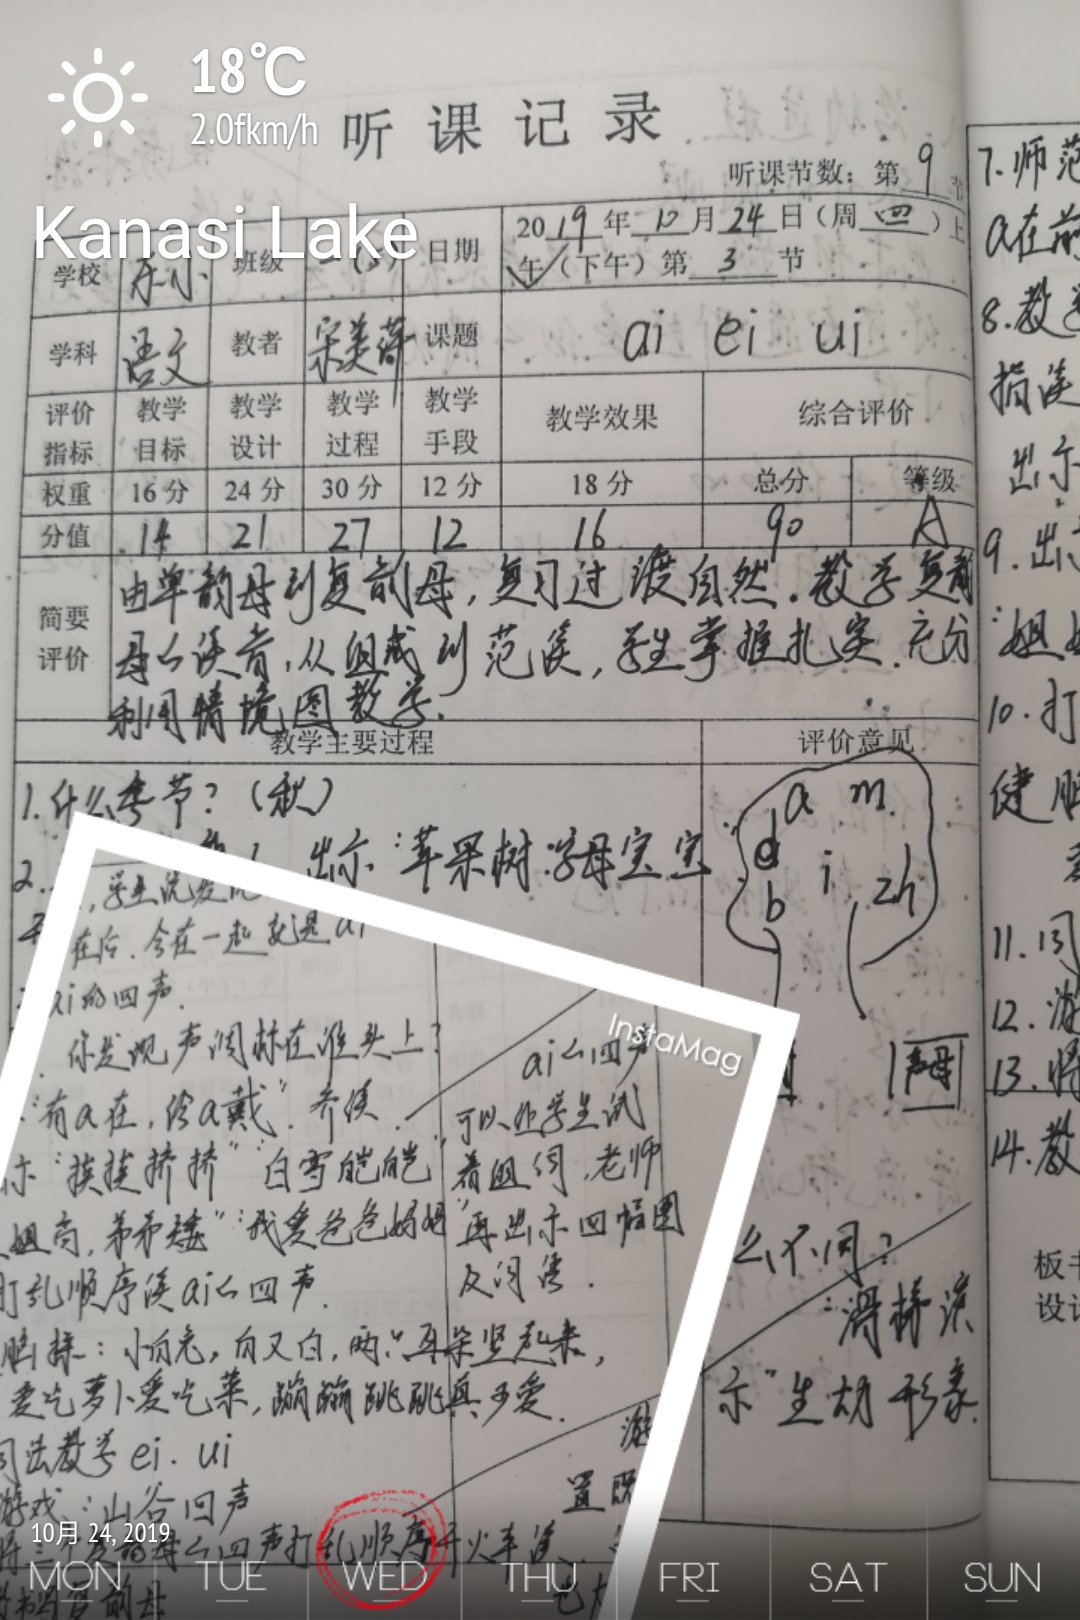 18℃
2.0fkm/h
Kanasi Lake
听课记录
听课节数：第 9 节
学校 班级 日期 2019年10月24日（周四）上
午（下午）第 3 节
学科 语文 教者 宋美萍 课题 ai ei ui
评价指标 教学目标 教学设计 教学过程 教学手段 教学效果 综合评价
权重 16分 24分 30分 12分 18分 总分 等级
分值 14 21 27 12 16 90 A
简要评价
由单韵母到复韵母，复习过渡自然。教学复韵
母的读音，从组成到范读，学生掌握扎实。充分
利用情境图教学。
教学主要过程 评价意见
1.什么季节？（秋）
2. 出示“苹果树”字母宝宝
a m
d i zh
b
声母
么不同？
示“生动形象.
InstaMag
在后.合在一起就是ai
ai的四声.
你发现声调标在谁头上？
“有a在，给a戴”.齐读.
示“挨挨挤挤”“白雪皑皑”
姐高，弟弟矮”“我爱爸爸妈妈”
打乱顺序读ai的四声.
小白兔，白又白，两只耳朵竖起来，
爱吃萝卜爱吃菜，蹦蹦跳跳真可爱.
同法教学ei.ui
游戏：山谷回声
ai的四声
可以让学生试
着组词，老师
再出示四幅图
及词语.
7.师范
a在前
8.教
指读
出示
9.出
“姐
10.打
健
11.同
12.游
13.将
14.教
板书
设计
10月 24, 2019
MON TUE WED THU FRI SAT SUN